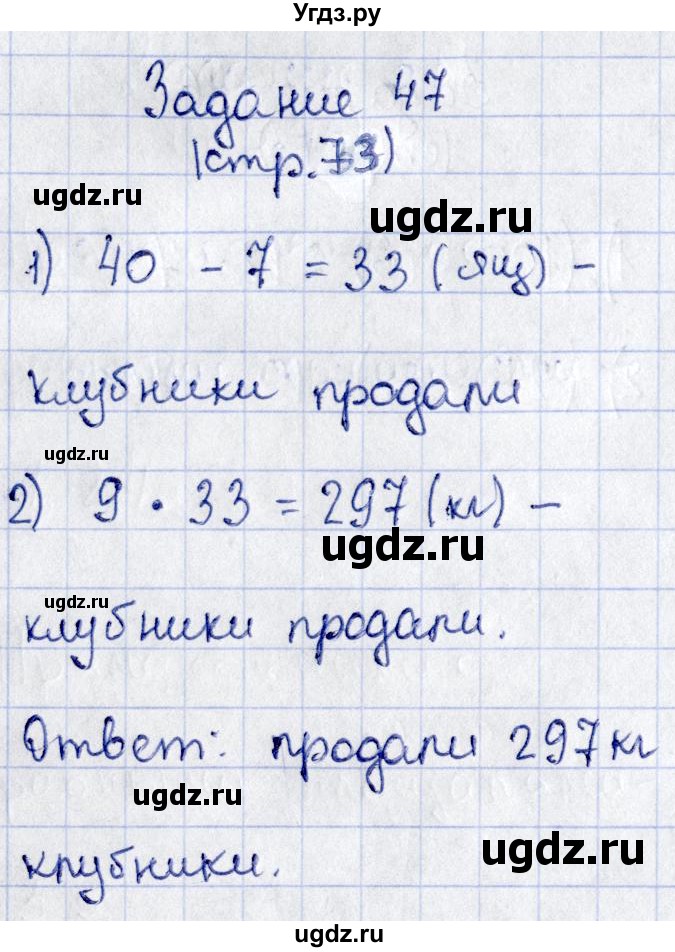 Угдз.ру
Задание 47
(стр. 73)
ugdz.ru
ugdz.ru
1) 40 - 7 = 33 (ящ) -
клубники продали
ugdz.ru
2) 9 · 33 = 297 (кг) -
ugdz.ru
ugdz.ru
клубники продали.
Ответ: продали 297 кг
ugdz.ru
ugdz.ru
клубники.
ugdz.ru